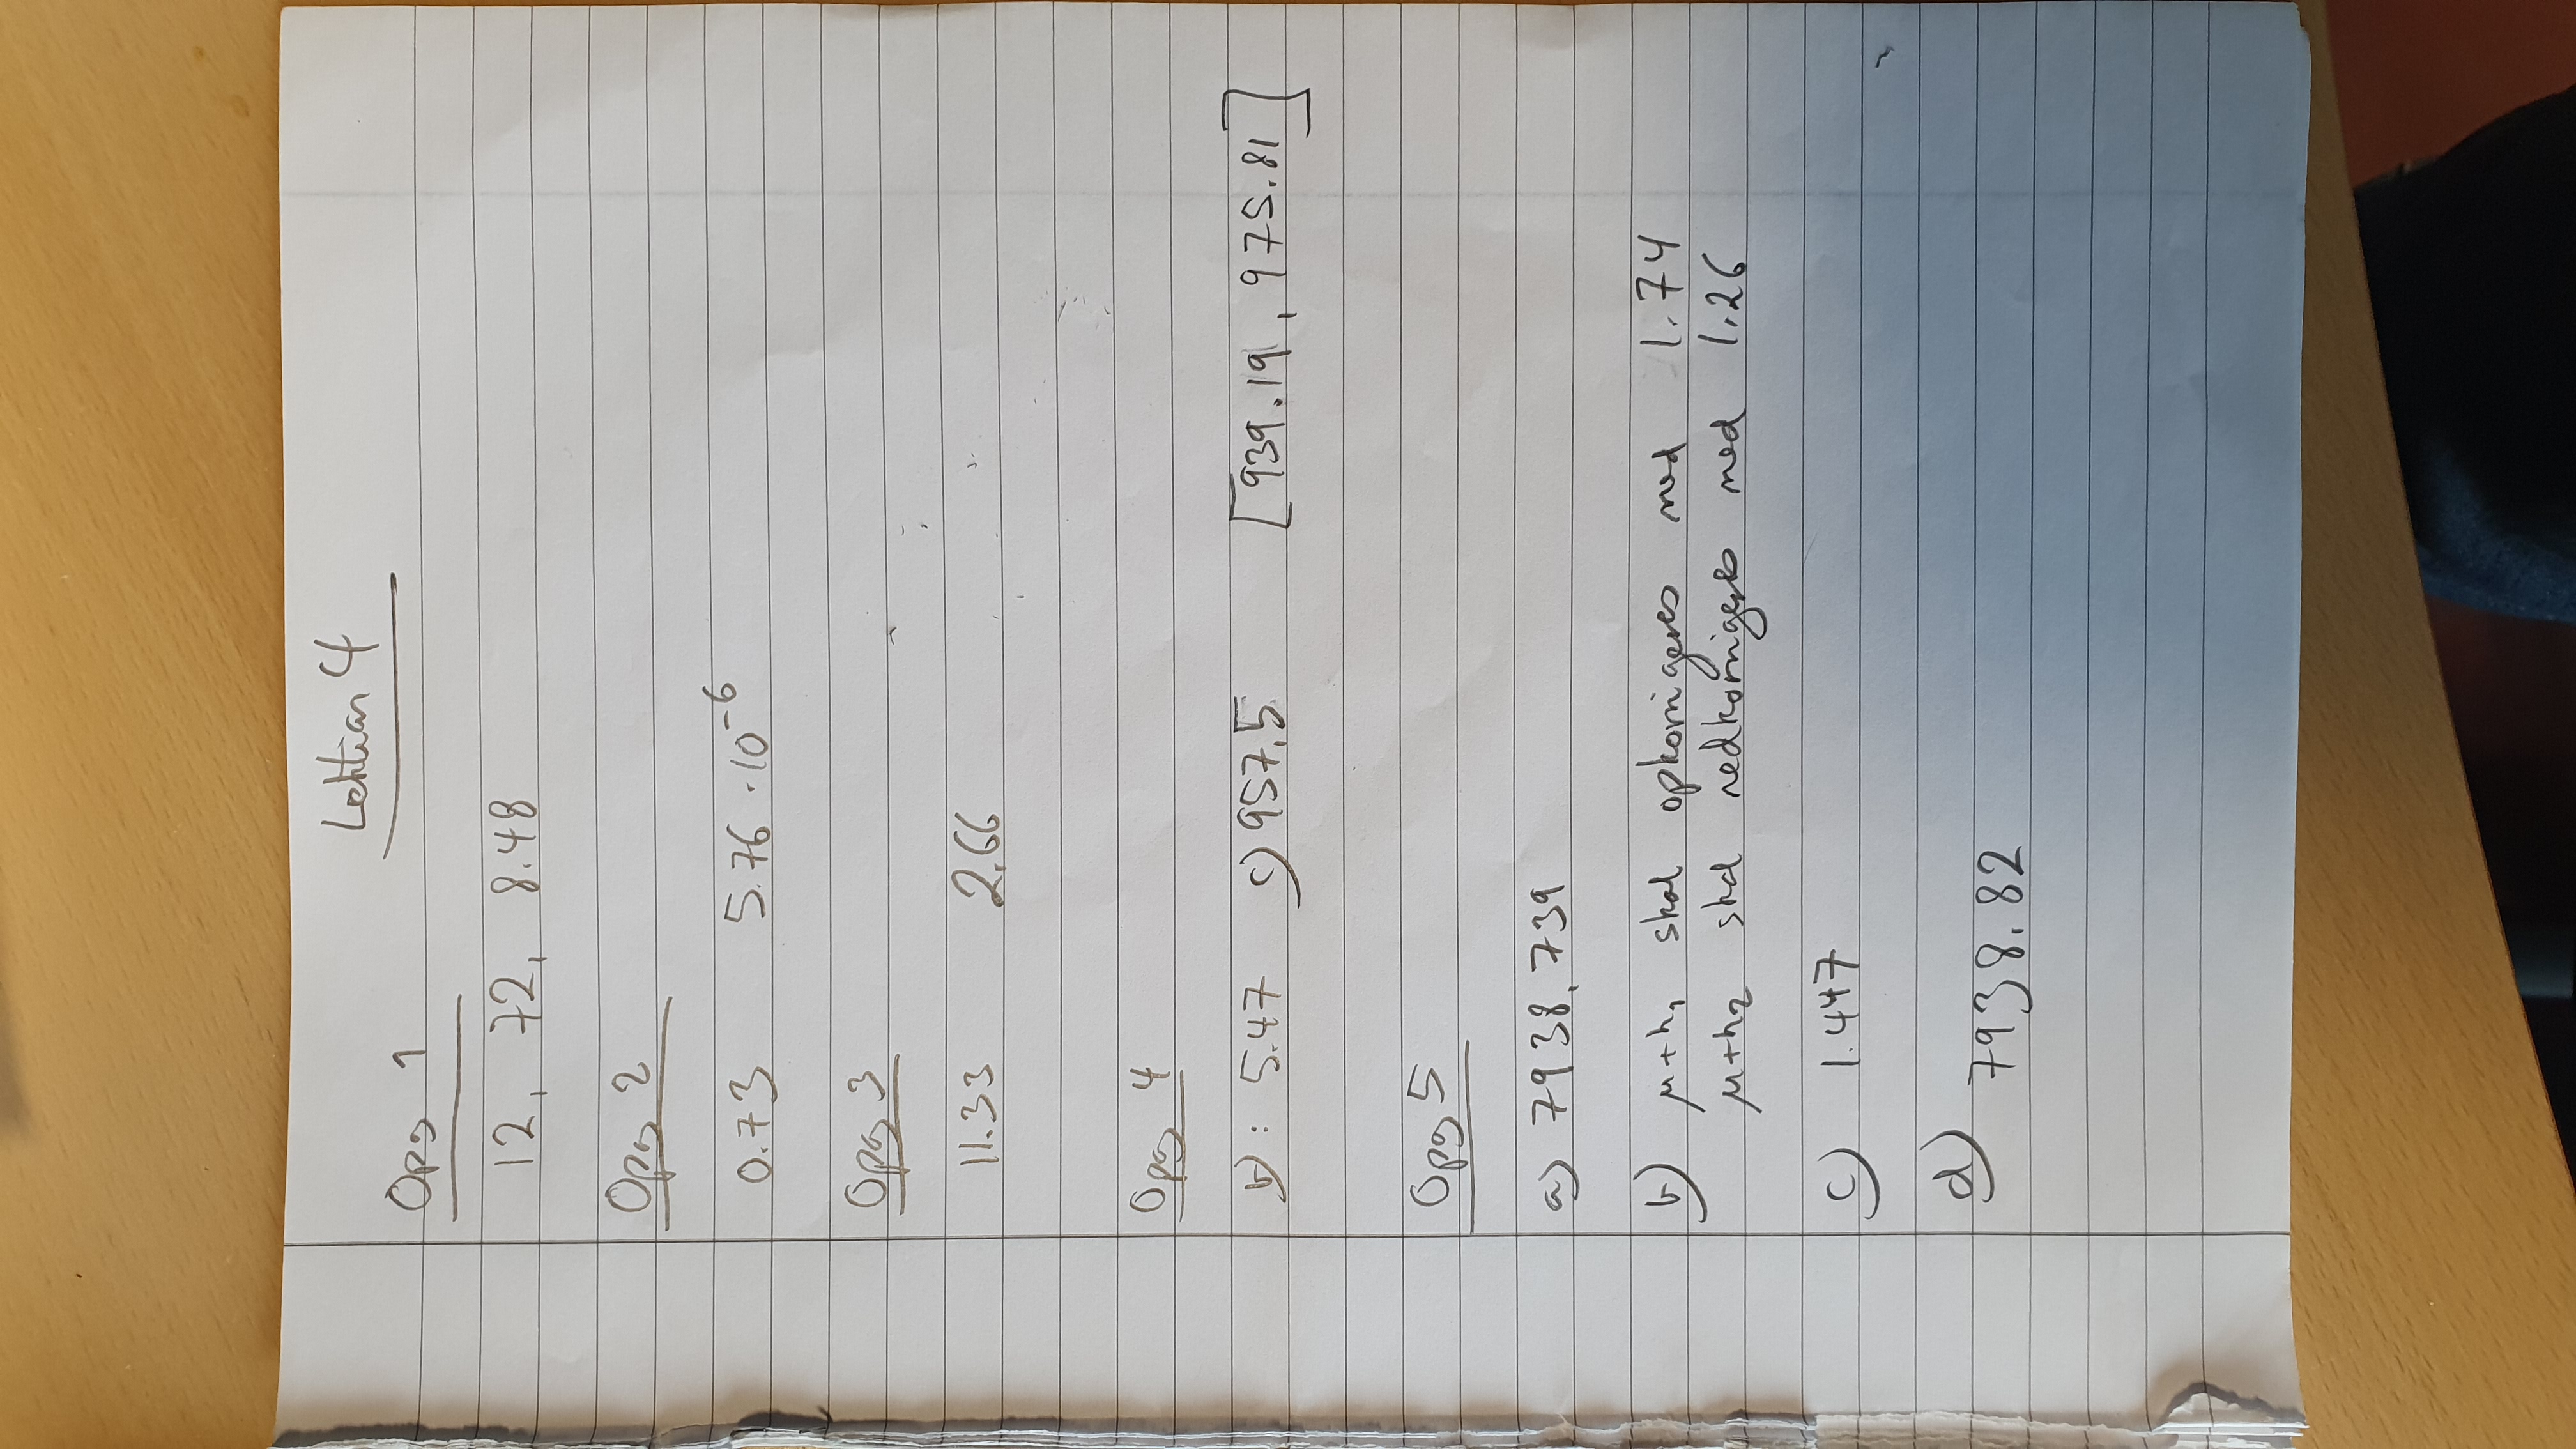 Lektion 4
Opg 1
12, 72, 8.48
Opg 2
0.73 5.76 · 10⁻⁶
Opg 3
11.33 2.66
Opg 4
b): 5.47 c) 957.5 [939.19, 975.81]
Opg 5
a) 7938.739
b) μ+h₁ skal opkorrigeres med 1.74
μ+h₂ skal nedkorrigeres med 1.26
c) 1.447
d) 7938.82